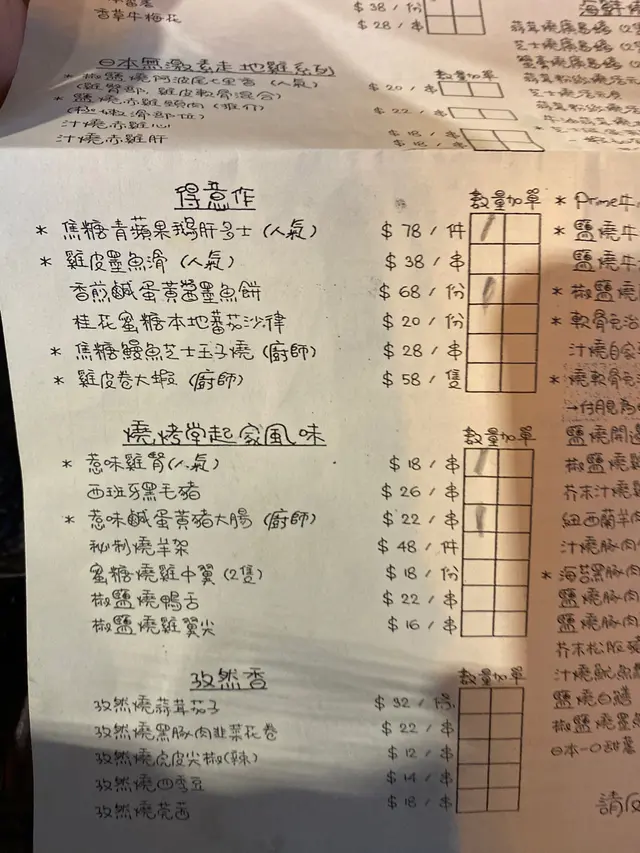 香草牛梅花 $28 / 串
$38 / 份
日本無激素走地雞系列 數量加單
* 椒鹽燒阿波尾七里香 (人氣) $20 / 串
(雞臀部, 雞皮軟骨混合)
* 鹽燒赤雞頸肉 (推介) $22 / 串
汁燒赤雞心 $18 / 串
汁燒赤雞肝 $18 / 串
得意作 數量加單
* 焦糖青蘋果鵝肝多士 (人氣) $78 / 件
* 雞皮墨魚滑 (人氣) $38 / 串
香煎鹹蛋黃醬墨魚餅 $68 / 份
桂花蜜糖本地蕃茄沙律 $20 / 份
* 焦糖鰻魚芝士玉子燒 (廚師) $28 / 串
* 雞皮卷大蝦 (廚師) $58 / 隻
燒烤堂起家風味 數量加單
* 惹味雞腎 (人氣) $18 / 串
西班牙黑毛豬 $26 / 串
* 惹味鹹蛋黃豬大腸 (廚師) $22 / 串
秘制燒羊架 $48 / 件
蜜糖燒雞中翼 (2隻) $18 / 份
椒鹽燒鴨舌 $22 / 串
椒鹽燒雞翼尖 $16 / 串
孜然香 數量加單
孜然燒蒜茸茄子 $32 / 條
孜然燒黑豚肉韭菜花卷 $22 / 串
孜然燒虎皮尖椒(辣) $12 / 串
孜然燒四季豆 $14 / 串
孜然燒芫茜 $18 / 串
* Prime牛
* 鹽燒牛
鹽燒牛
* 椒鹽燒
* 軟骨免治
汁燒自家
* 燒軟骨免
鹽燒開邊
椒鹽燒雞
芥末汁燒雞
紐西蘭羊肉
汁燒豚肉
* 海苔黑豚肉
鹽燒豚肉
鹽燒豚肉
芥末松阪豬
汁燒魷魚
鹽燒白鱔
椒鹽燒墨
日本一口甜薯
請反